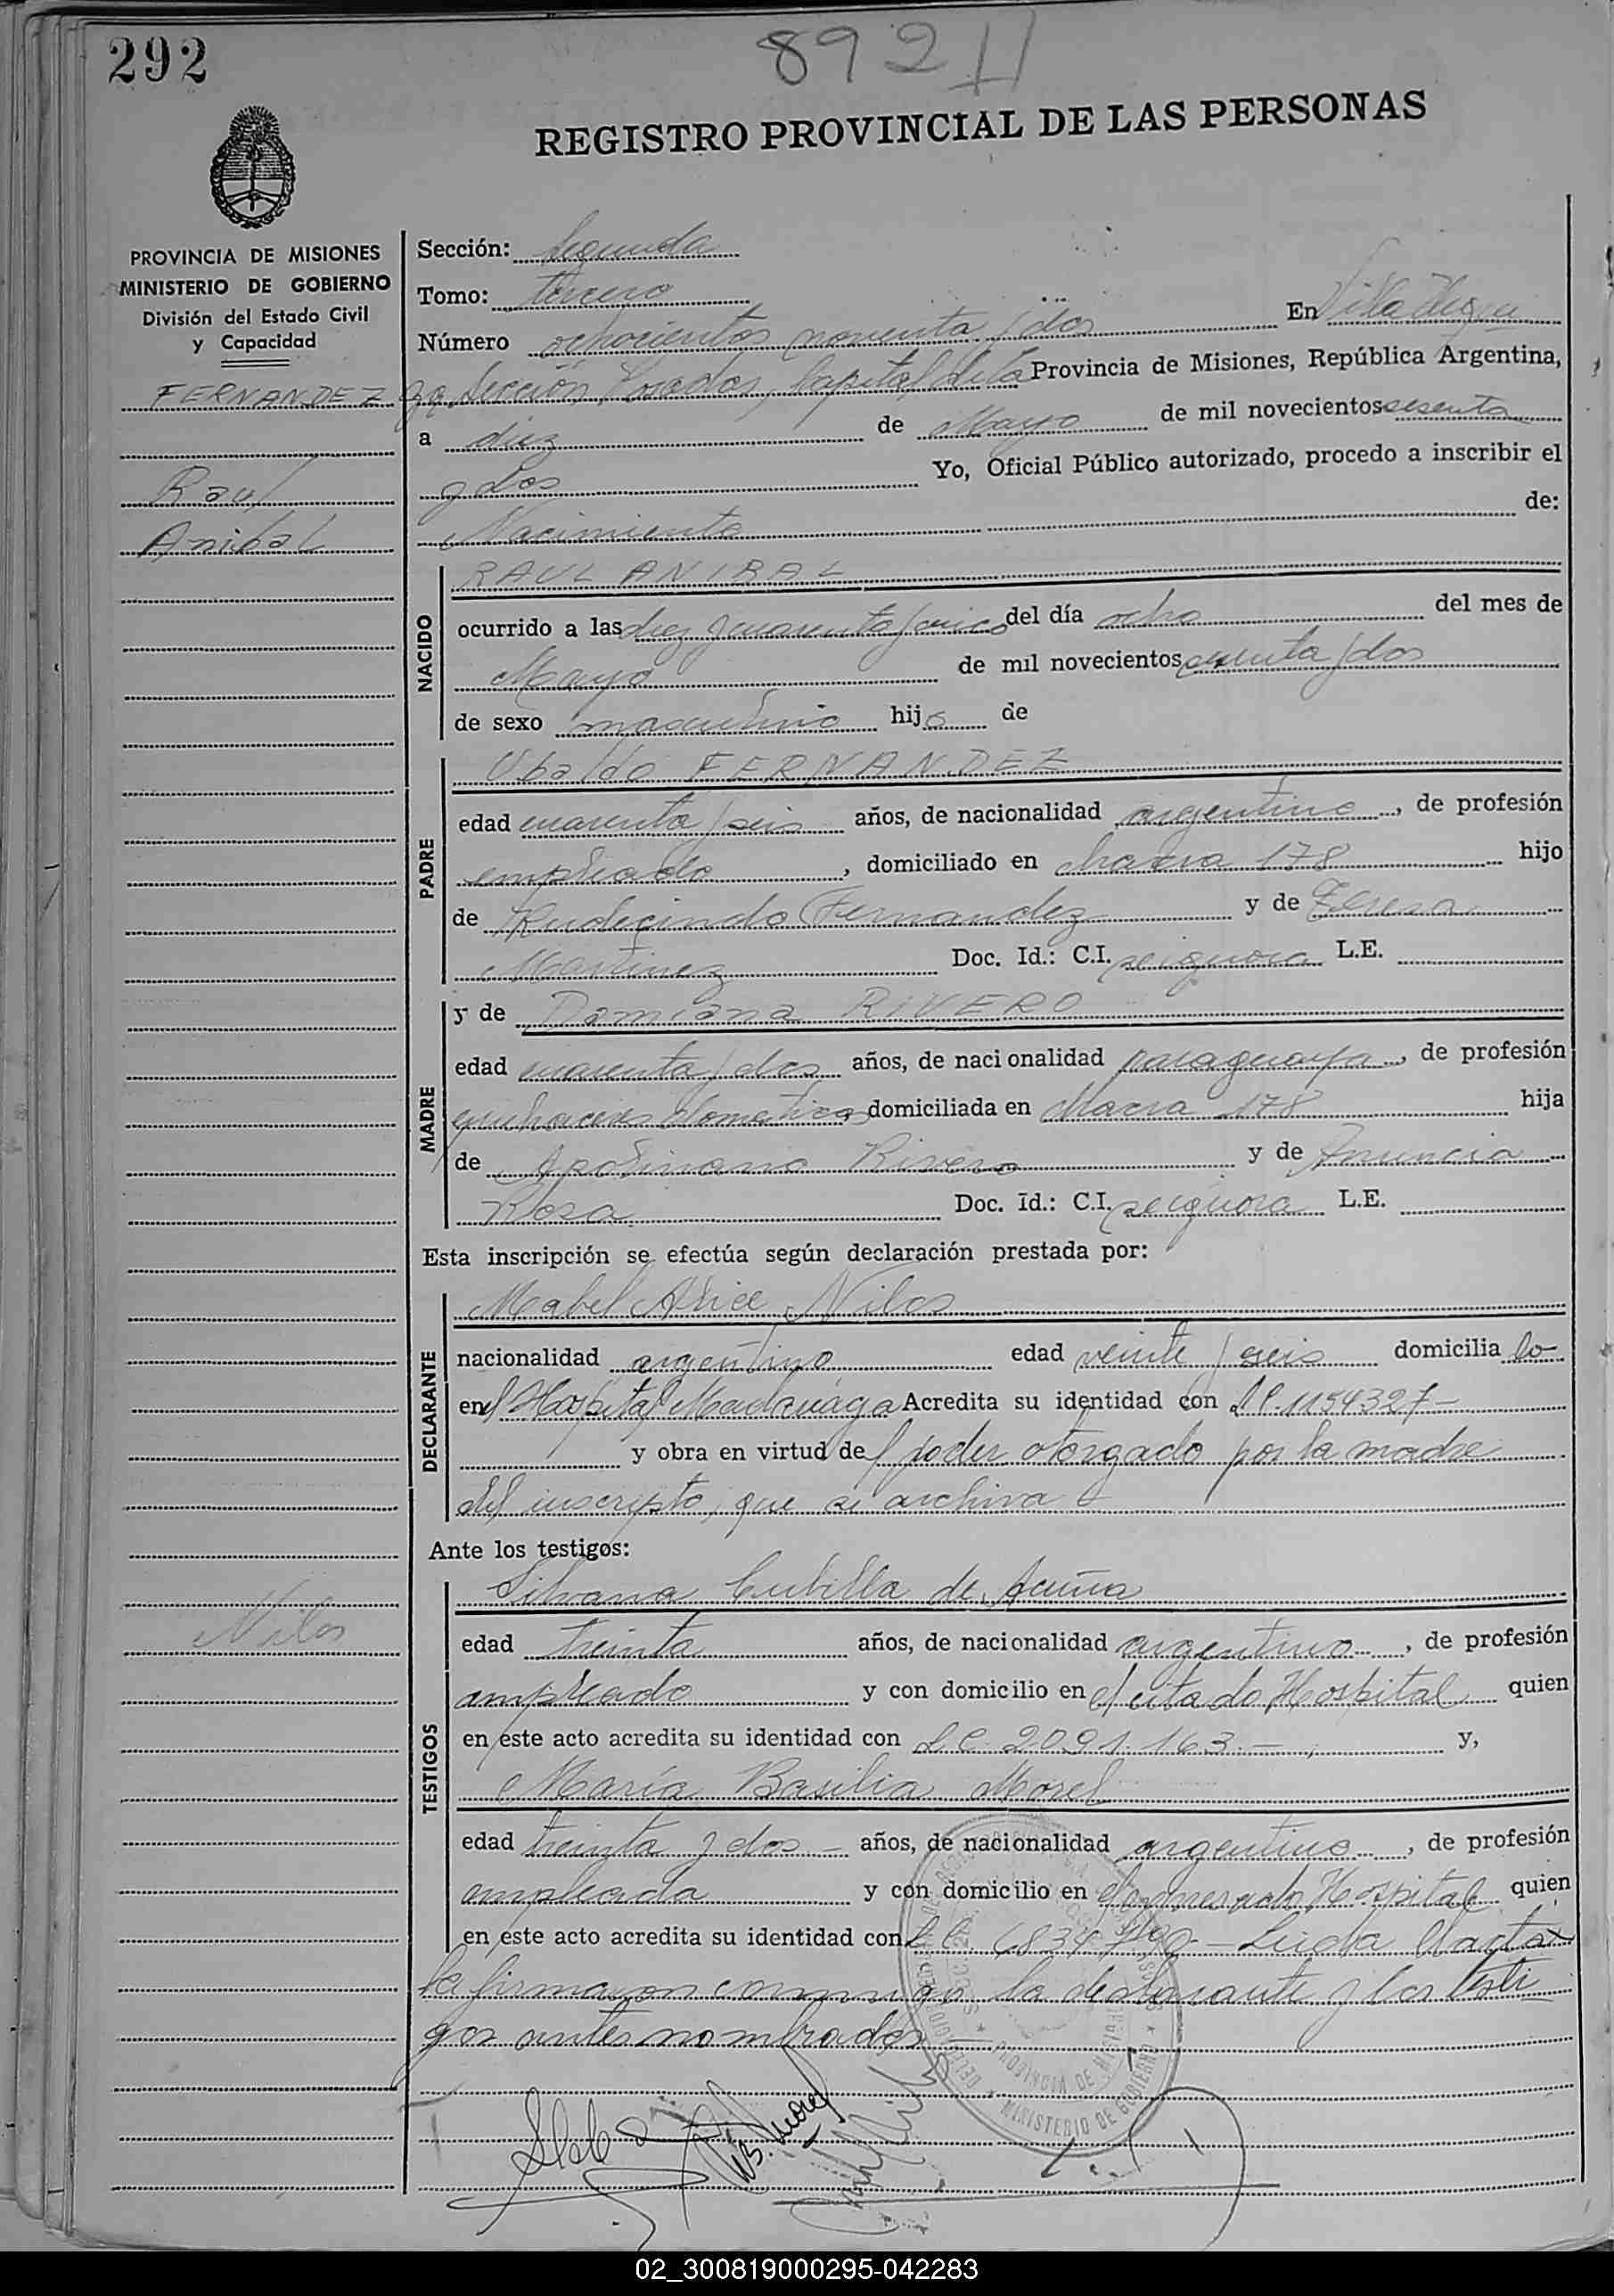 292
892 II
REGISTRO PROVINCIAL DE LAS PERSONAS
PROVINCIA DE MISIONES
MINISTERIO DE GOBIERNO
División del Estado Civil
y Capacidad
FERNANDEZ
Raul
Anibal
Nilos
Sección: Segunda
Tomo: tercero
Número ochocientos noventa / dos En Villa Urquiza
2a Sección Posadas, Capital de la Provincia de Misiones, República Argentina,
a diez de Mayo de mil novecientos sesenta
y dos Yo, Oficial Público autorizado, procedo a inscribir el
Nacimiento de:
NACIDO
RAUL ANIBAL
ocurrido a las diez y cuarenta / cinco del día ocho del mes de
Mayo de mil novecientos sesenta / dos
de sexo masculino hijo de
PADRE
Ubaldo FERNANDEZ
edad cuarenta / seis años, de nacionalidad argentino, de profesión
empleado, domiciliado en chacra 178 hijo
de Rudecindo Fernandez y de Teresa
Martinez Doc. Id.: C.I. se ignora L.E.
MADRE
y de Damiana RIVERO
edad cuarenta / dos años, de nacionalidad paraguaya, de profesión
quehaceres domesticos domiciliada en chacra 178 hija
de Apolinario Rivero y de Anuncia
Rosa Doc. Id.: C.I. se ignora L.E.
Esta inscripción se efectúa según declaración prestada por:
DECLARANTE
Mabel Alice Nilos
nacionalidad argentino edad veinte / seis domicilia do
en el Hospital Madariaga Acredita su identidad con LC. 1154327-
y obra en virtud del poder otorgado por la madre
del inscripto, que se archiva
Ante los testigos:
TESTIGOS
Silvana Cubilla de Acuña
edad treinta años, de nacionalidad argentino, de profesión
empleado y con domicilio en el citado Hospital quien
en este acto acredita su identidad con LC 2.091.163.- y,
María Basilia Morel
edad treinta y dos - años, de nacionalidad argentino, de profesión
empleada y con domicilio en el Hospital quien
en este acto acredita su identidad con LC. - Leída el acta
la firmaron conmigo la declarante y los testi
gos antes nombrados
PROVINCIA DE MISIONES
MINISTERIO DE GOBIERNO
B. Morel
02_300819000295-042283